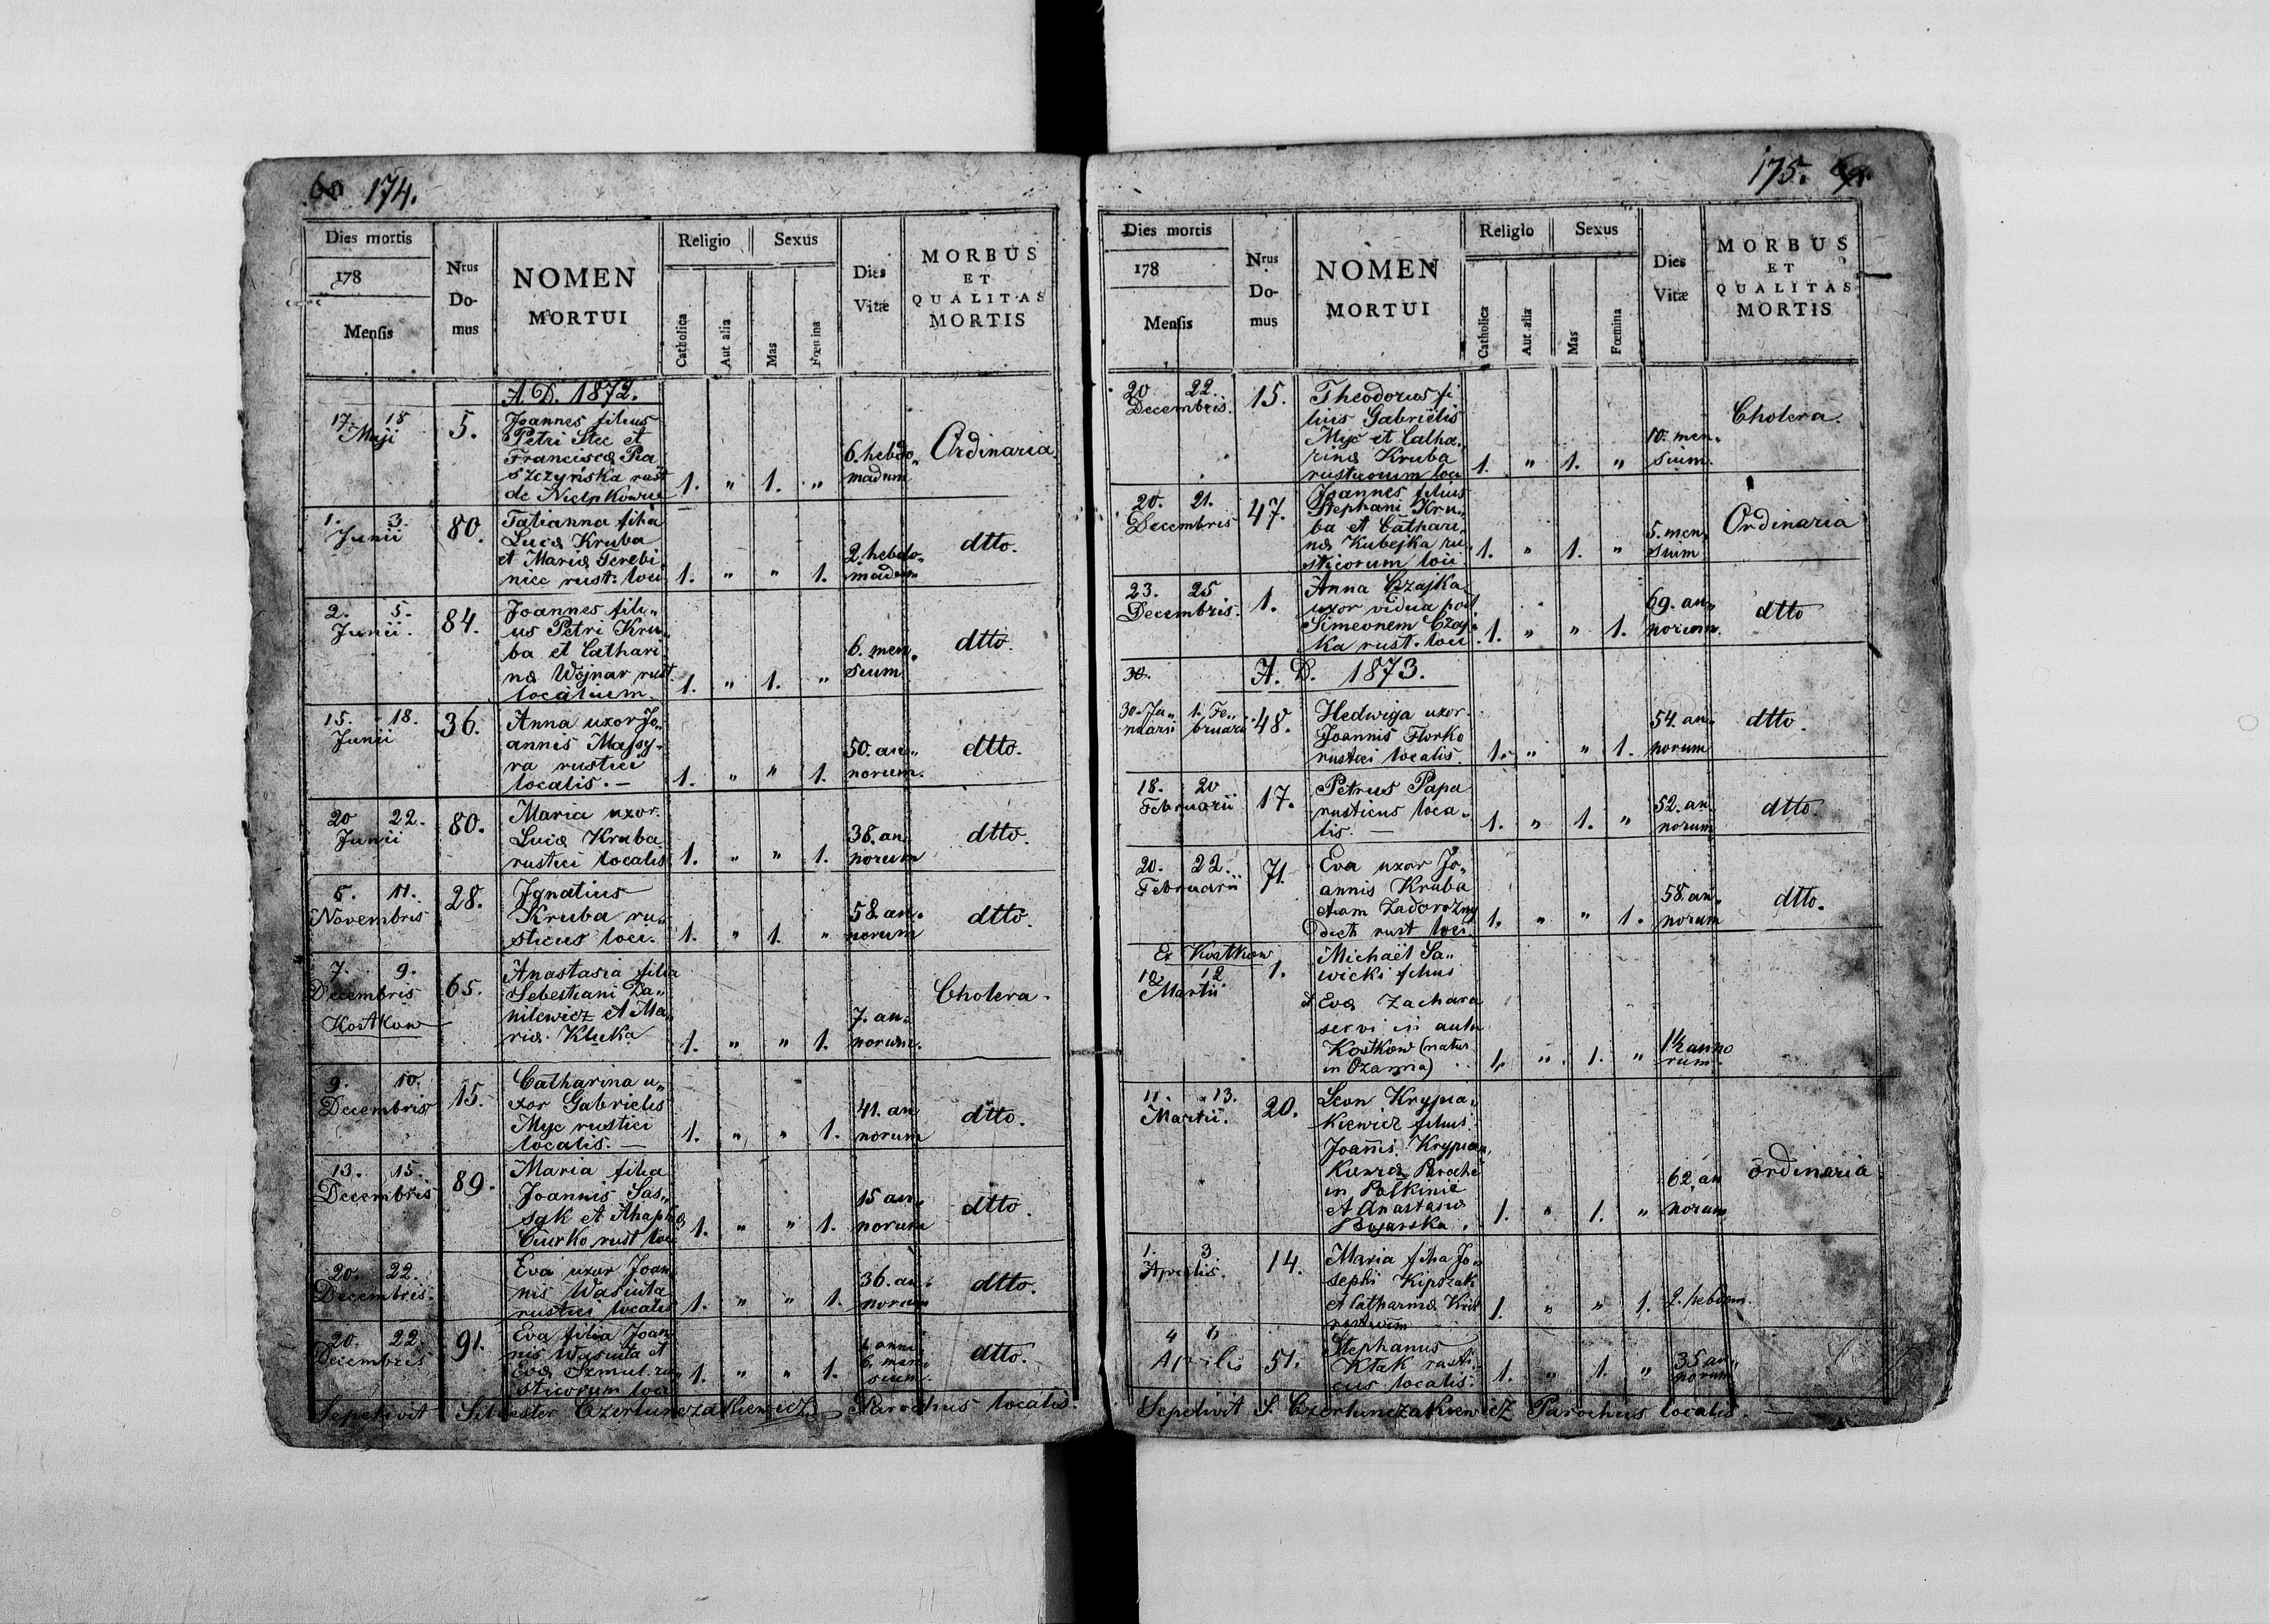 174.
Dies mortis
178
Mensis
Nrus
Do-
mus
NOMEN
MORTUI
Religio
Catholica
Aut alia
Sexus
Mas
Fœmina
Dies
Vitæ
MORBUS
ET
QUALITAS
MORTIS
A. D. 1872.
17. 18
Maji
5.
Joannes filius
Petri Stec et
Franciscæ Pia
szczyńska rust
de Nielpkowic
1. " 1. "
6. hebdo„
madum
Ordinaria
1. 3.
Junii
80.
Tatianna filia
Lucæ Kruba
et Mariæ Terebi
niec rust. loci
1. " " 1.
2. hebdo„
madum
dtto.
2. 5.
Junii.
84.
Joannes fili„
us Petri Kru„
ba et Cathari„
næ Wojnar rust.
localium.
1. " 1. "
6. men„
sium
dtto.
15. 18.
Junii
36.
Anna uxor Jo„
annis Massy„
ra rustici
localis. —
1. " " 1.
50. an„
norum.
dtto.
20 22.
Junii
80.
Maria uxor
Lucæ Kruba
rustici localis
1. " " 1.
38. an
norum
dtto.
11.
Novembris
28.
Ignatius
Kruba ru„
sticus loci.
1. " 1. "
58. an„
norum
dtto.
7. 9.
Decembris
Kostkow
65.
Anastasia filia
Sebestiani Da„
nilewicz et Ma„
riæ Kluka
1. " " 1.
7. an„
norum.
Cholera.
9. 10.
Decembris
15.
Catharina u„
xor Gabrielis
Myc rustici
localis. —
1. " " 1.
41. an
norum
dtto.
13. 15.
Decembris
89.
Maria filia
Joannis Sas„
sak et Ahaphiæ
Ciurko rust loci
1. " " 1.
15 an„
norum
dtto.
20. 22.
Decembris.
Eva uxor Joan
nis Wasiuta
rustici localis
1. " " 1.
36. an„
norum
dtto.
20. 22.
Decembris
91.
Eva filia Joan
nis Wasiuta et
Evæ Szmul. ru„
sticorum loci
1. " " 1.
1. anni
6. men
sium.
dtto.
Sepelivit Silvester Czerlunczakiewicz Parochus localis.
175.
Dies mortis
178
Mensis
Nrus
Do-
mus
NOMEN
MORTUI
Religio
Catholica
Aut alia
Sexus
Mas
Fœmina
Dies
Vitæ
MORBUS
ET
QUALITAS
MORTIS
20 22.
Decembris.
15.
Theodorus fi
lius Gabriëlis
Myc et Catha„
rinæ Kruba
rusticorum loci
1. " 1. "
10. men„
sium.
Cholera.
20. 21.
Decembris
47.
Joannes filius
Stephani Kru„
ba et Cathari„
næ Kubejka ru„
sticorum loci
1. " 1. "
5. men„
sium
Ordinaria
23. 25
Decembris.
1.
Anna Czajka
uxor vidua post
Simeonem Czaj„
ka rust. loci
1. " " 1.
69. an„
norum.
dtto
30.
A. D. 1873.
30. Ja„ 1. Fe„
nuarii bruarii
48.
Hedwiga uxor
Joannis Florko
rustici localis.
1. " " 1.
54. an„
norum
dtto.
18. 20
Februarii
17.
Petrus Papa
rusticus loca„
lis. —
1. " 1. "
52. an.
norum
dtto.
20. 22.
Februarii
71.
Eva uxor Jo„
annis Kruba
etiam Zadorozny
dicti rust loci.
1. " " 1.
58. an„
norum
dtto.
Ex Kostkow
10 12.
Martii
1.
Michaël Sa„
wicki filius
et Evæ Zachara
servi in aula
Kostkow (natus
in Ozanna)
1. " 1. "
1½ anno
rum.
11. 13.
Martii.
20.
Leon Krypia„
kiewicz filius
Joannis Krypia„
kiewicz Parochi
in Pałkinie
et Anastasiæ
Bojarska.
1. " 1. "
62 an
norum
ordinaria
1. 3
Aprilis.
14.
Maria filia Jo„
sephi Kipszak
et Catharinæ
1. " " 1.
2. hebdom.
4 6
Aprilis
51.
Stephanus
Ktak rusti„
cus localis.
1. " 1. "
35 an„
norum
Sepelivit S. Czerlunczakiewicz Parochus localis. —